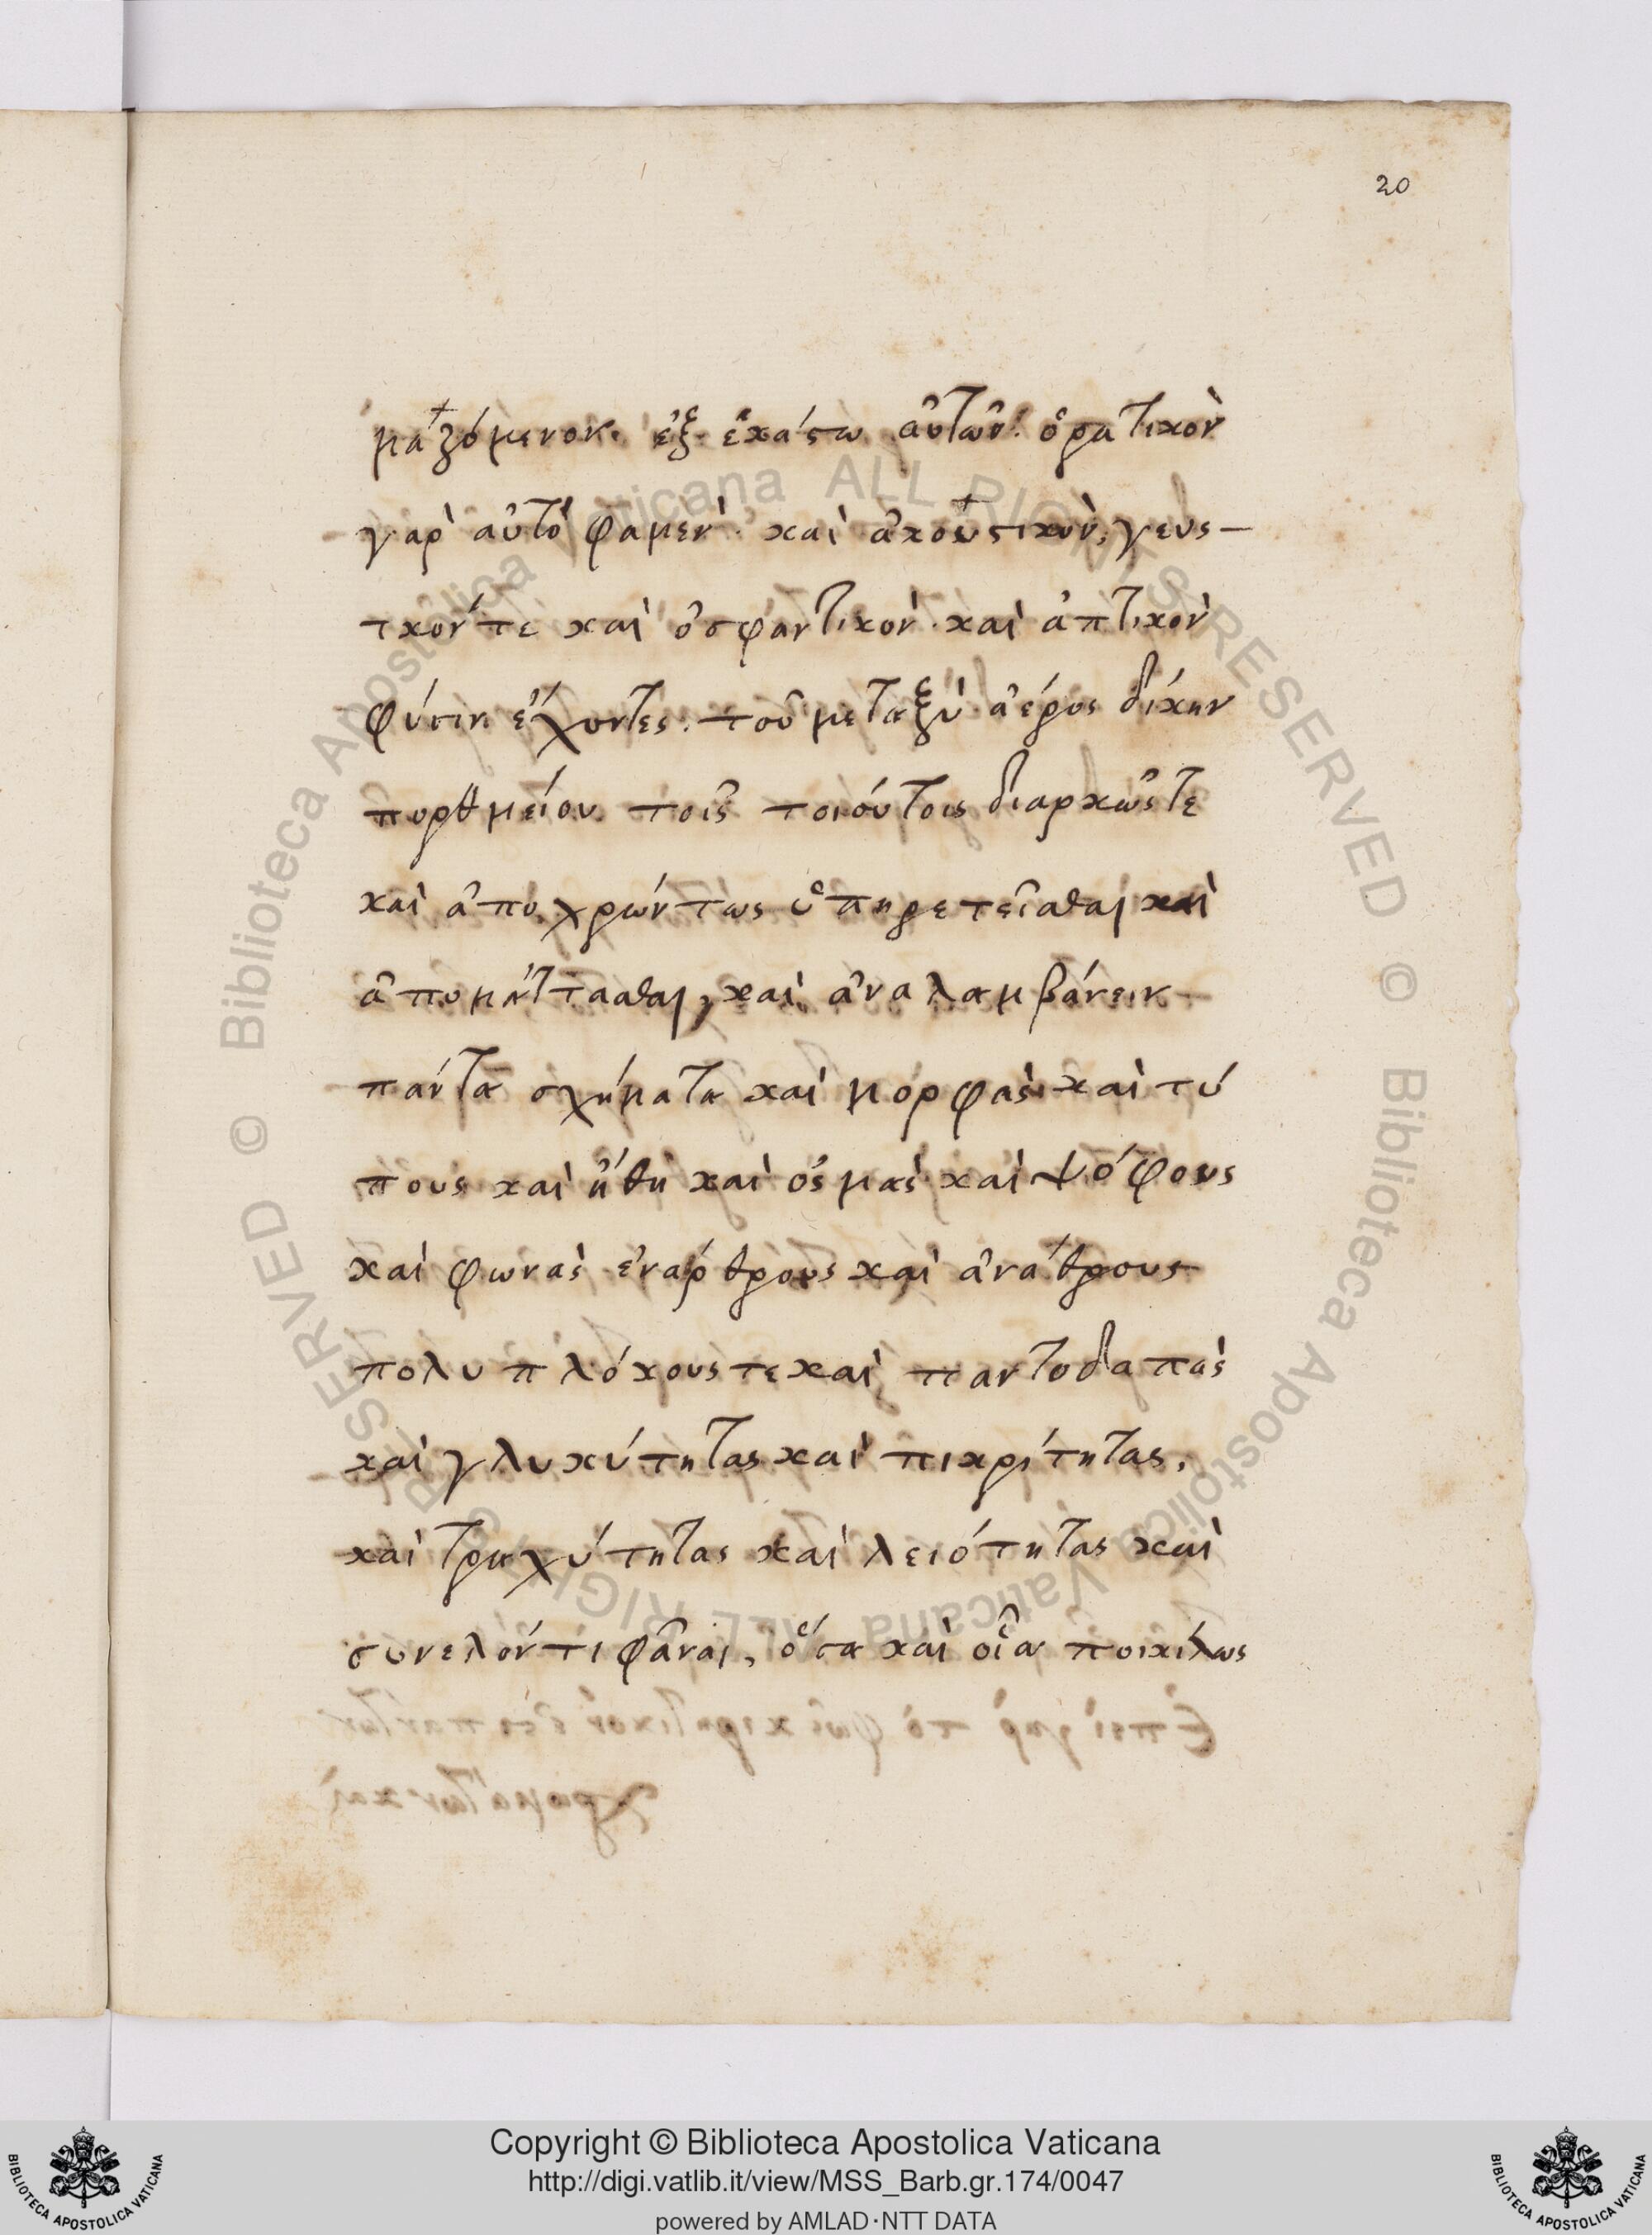 20
μαζόμενον· ἐξ ἑκάστω αὐτῶν· ὁρατικὸν
γὰρ αὐτὸ φαμὲν· καὶ ἀκουστικὸν, γευσ-
τκόν τε καὶ ὀσφαντικὸν· καὶ ἁπτικὸν
φύσιν ἔχοντες· τοῦ μεταξὺ ἀέρος δίκην
πορθμείου τοῖς τοιούτοις διαρκῶς τε
καὶ ἀποχρώντως ὑπηρετεῖσθαι καὶ
ἀπομάττασθαι, καὶ ἀναλαμβάνειν
πάντα σχήματα καὶ μορφὰς καὶ τύ
πους καὶ ἤθη καὶ ὀσμὰς καὶ ψόφους
καὶ φωνὰς ἐνάρθρους καὶ ἀνάθρους
πολυπλόκους τε καὶ παντοδαπὰς
καὶ γλυκύτητας καὶ πικρίτητας,
καὶ τραχύτητας καὶ λειότητας καὶ
συνελόντι φᾶναι, ὅσα καὶ οἷα ποικίλως
© Biblioteca Apostolica Vaticana ALL RIGHTS RESERVED
© Biblioteca Apostolica Vaticana ALL RIGHTS RESERVED
Copyright © Biblioteca Apostolica Vaticana
http://digi.vatlib.it/view/MSS_Barb.gr.174/0047
powered by AMLAD·NTT DATA
BIBLIOTECA APOSTOLICA VATICANA
BIBLIOTECA APOSTOLICA VATICANA